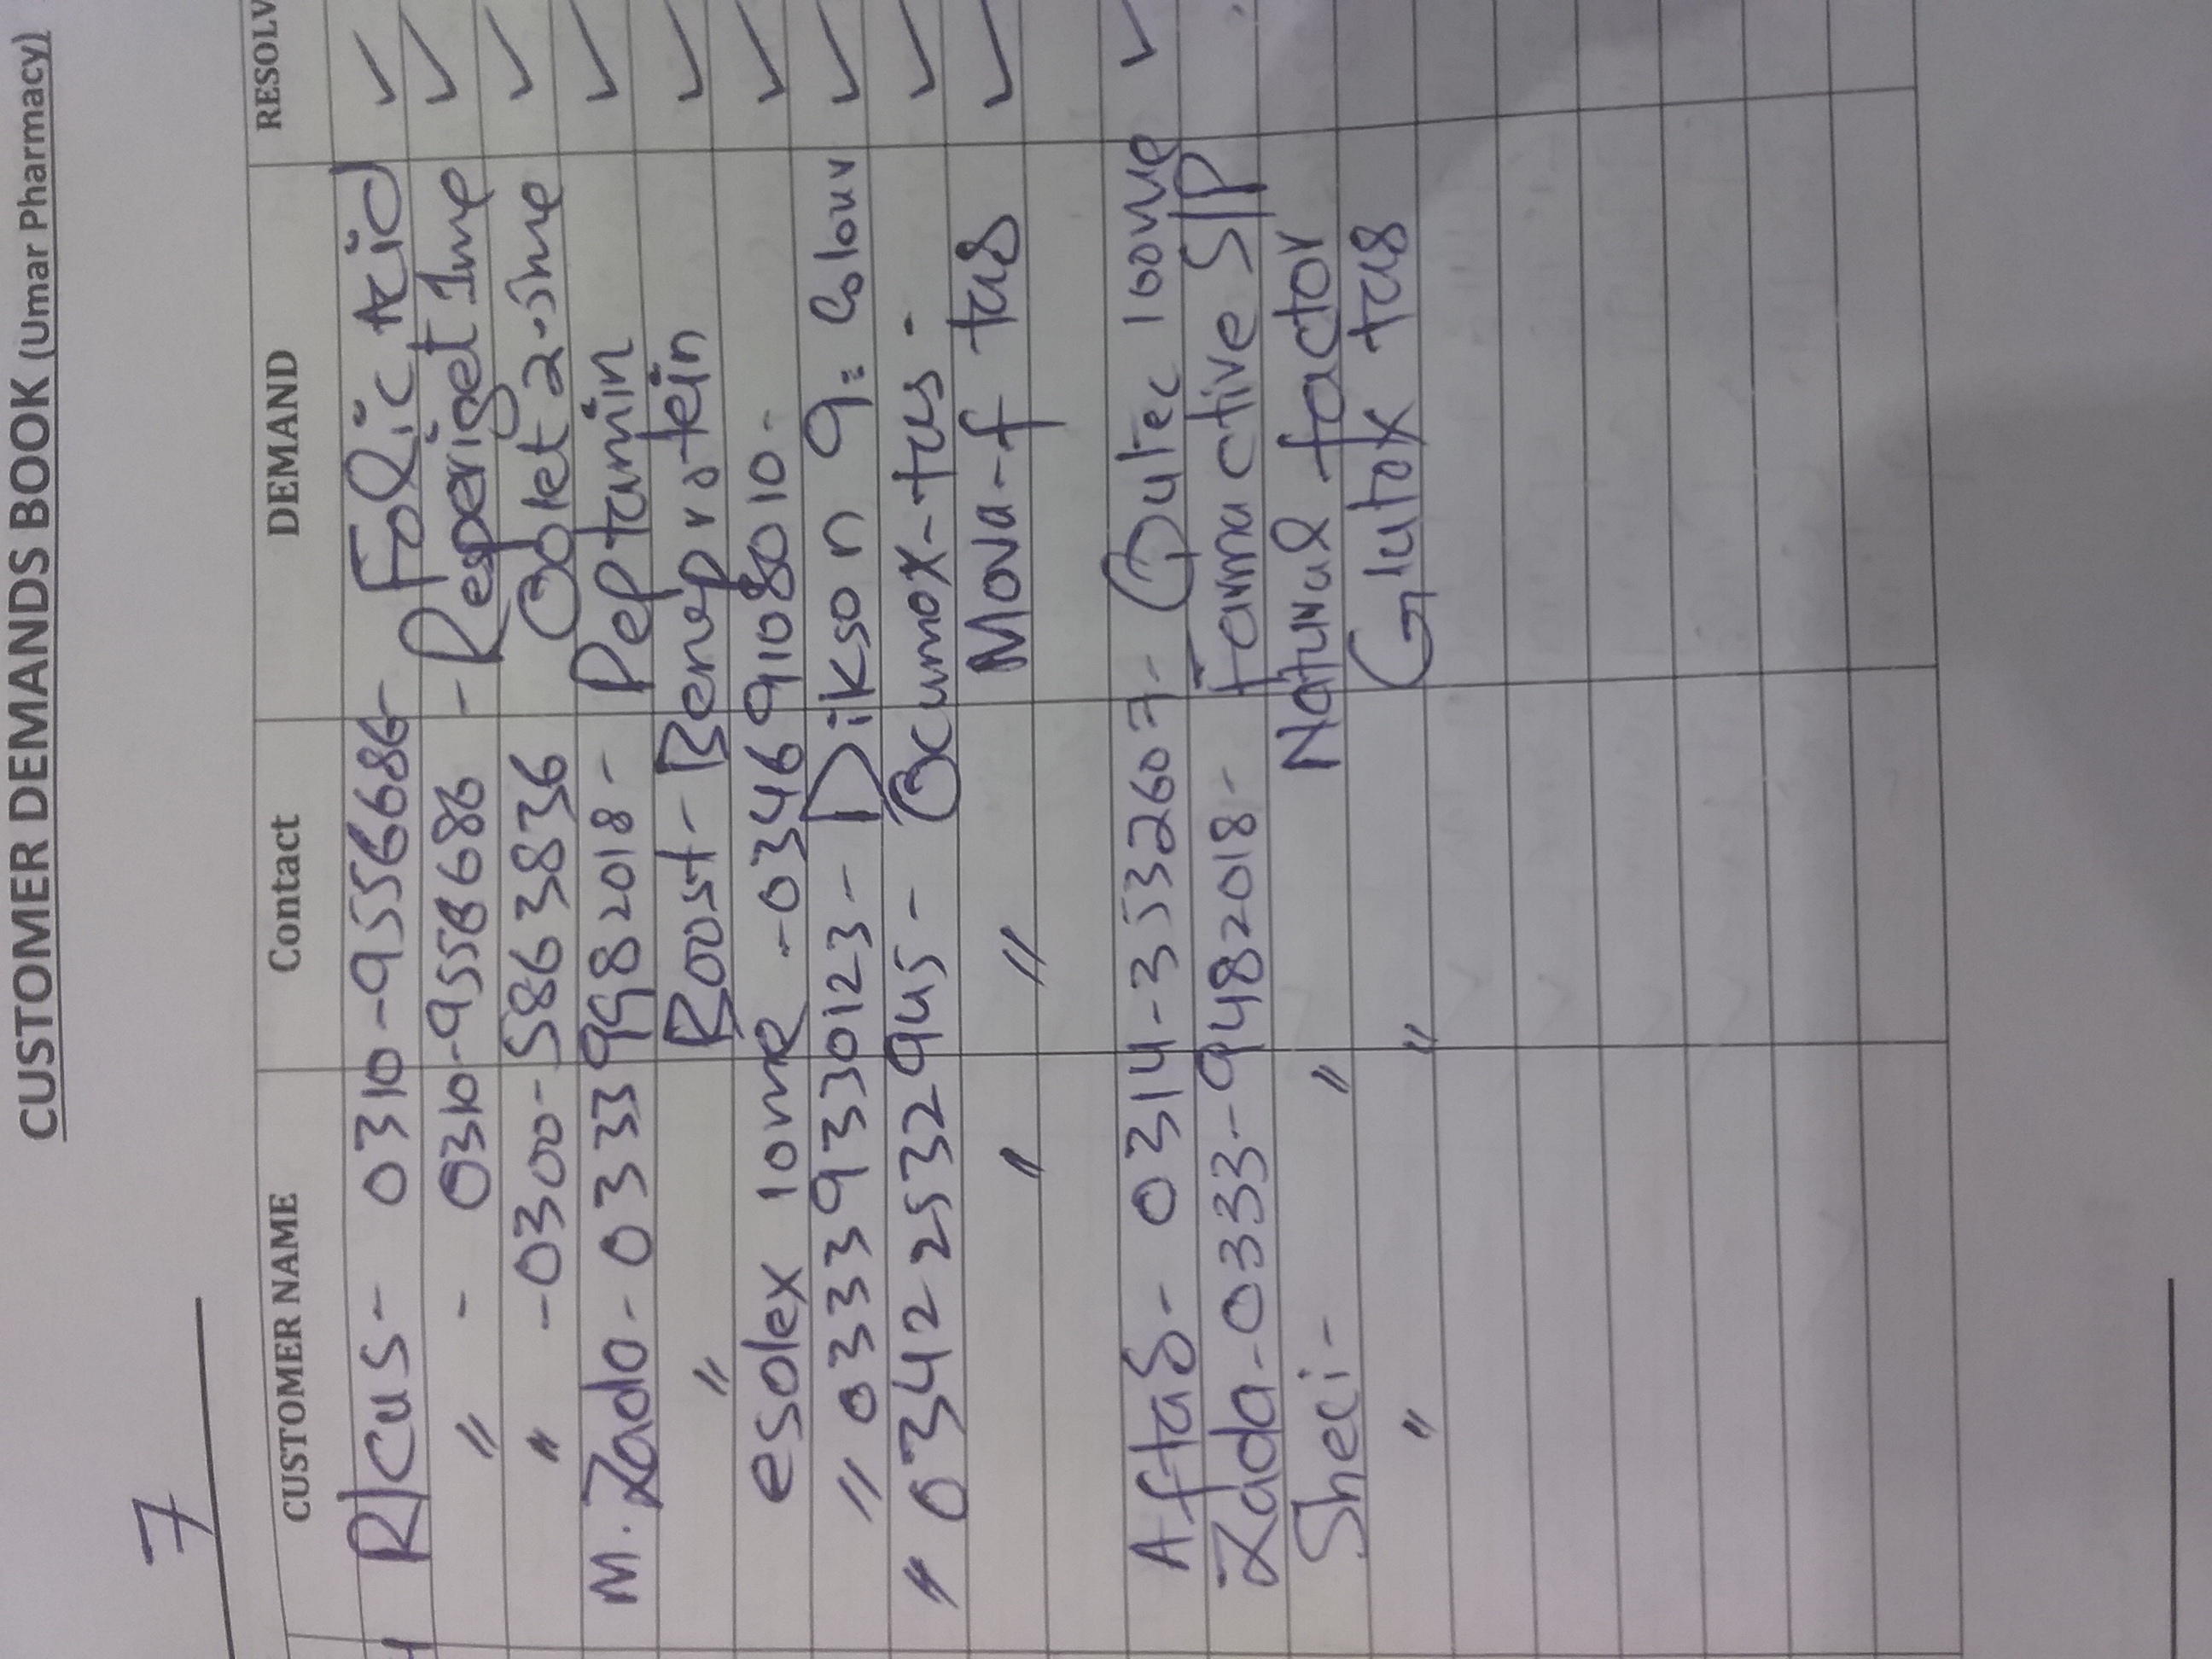 CUSTOMER DEMANDS BOOK (Umar Pharmacy)
7
CUSTOMER NAME Contact DEMAND RESOLV
R/Cus - 0310-9556686- Folic Acid ✓
〃 - 0310-9556686 - Resperidet 1mg ✓
〃 - 0300-5863836 Oblet 2.5mg ✓
M. Zado - 0333 9982018 - Peptamin ✓
〃 Boost - Beneprotein ✓
esolex 10mg - 03469108010 - ✓
〃 03339330123 - Dikson 9= Colour ✓
〃 03422532945 - Ocumox-tas - ✓
〃 〃 Mova-f tas ✓
Aftab - 0314-3532607 - Qutec 100mg ✓
Zada - 0333-9482018 - Famactive S/P
Sheci - 〃 Natural factor
〃 〃 Glutox tas